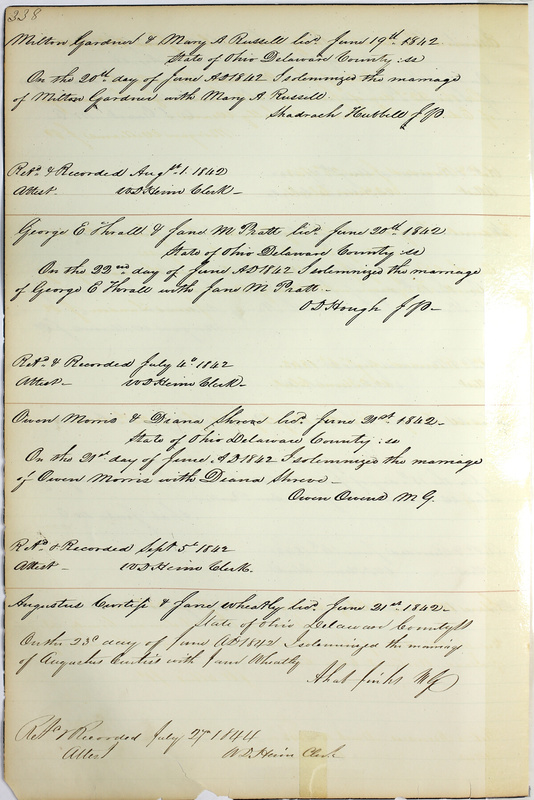 338
Milton Gardner & Mary A Russell lic. June 19th 1842
State of Ohio Delaware County : ss
On the 20th day of June AD 1842 I solemnized the marriage
of Milton Gardner with Mary A Russell.
Shadrach Hubbell J.P.
Retd. & Recorded Augst. 1. 1842
Attest. W D Heim Clerk –
George E Thrall & Jane M Pratt lic. June 20th 1842
State of Ohio Delaware County : ss
On the 22nd day of June AD 1842 I solemnized the marriage
of George E Thrall with Jane M Pratt –
O D Hough J P –
Retd. & Recorded July 4th 1842
Attest – W D Heim Clerk –
Owen Morris & Diana Shreve lic. June 21st 1842 –
State of Ohio Delaware County : ss
On the 21st day of June AD 1842 I solemnized the marriage
of Owen Morris with Diana Shreve –
Owen Owens M G.
Retd. & Recorded Sept 5th 1842
Attest – W D Heim Clerk.
Augustus Curtiss & Jane Wheatly lic. June 21st 1842 –
State of Ohio Delaware County SS
On the 23d day of June AD 1842 I solemnized the marriage
of Augustus Curtiss with Jane Wheatly
Retd & Recorded July 27 1844
Attest W D Heim Clerk